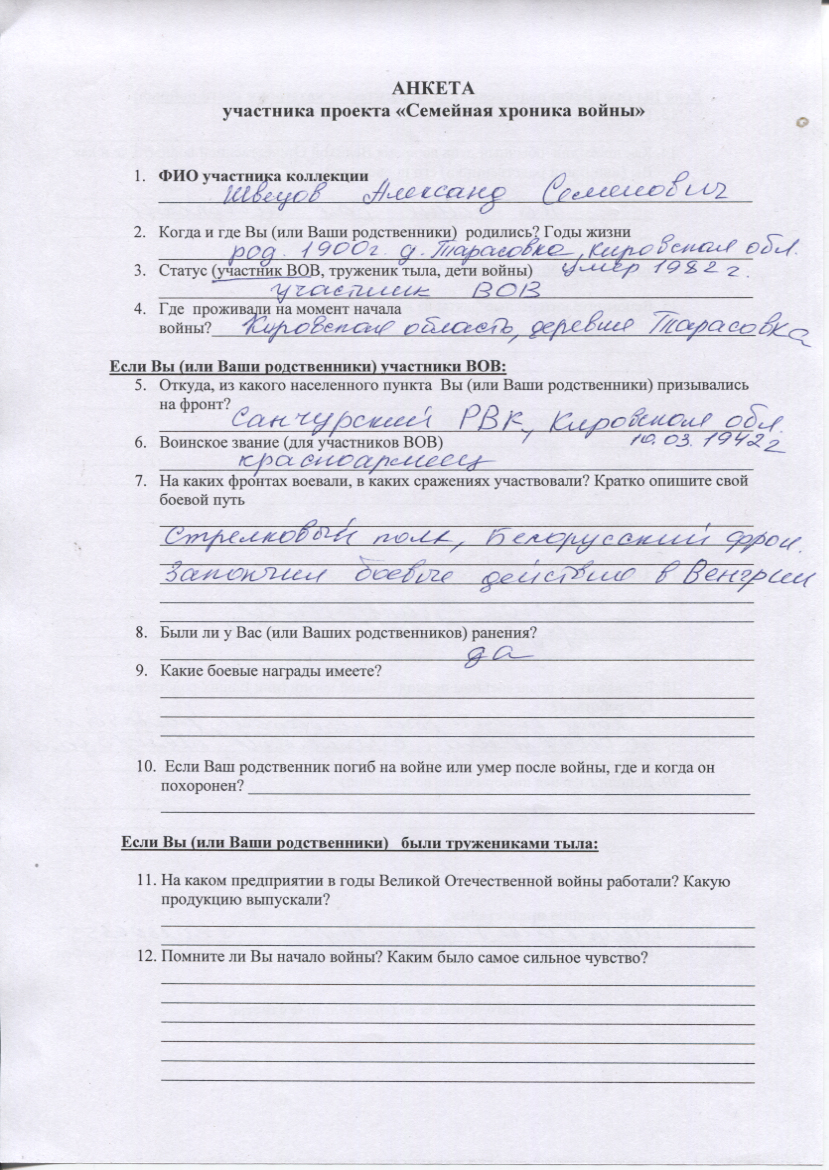 АНКЕТА
участника проекта «Семейная хроника войны»
1. ФИО участника коллекции
Швецов Александ Семенович
2. Когда и где Вы (или Ваши родственники) родились? Годы жизни
род. 1900г. д. Тарасовка, Кировская обл.
3. Статус (участник ВОВ, труженик тыла, дети войны) умер 1982 г.
участник ВОВ
4. Где проживали на момент начала
войны? Кировская область, деревня Тарасовка
Если Вы (или Ваши родственники) участники ВОВ:
5. Откуда, из какого населенного пункта Вы (или Ваши родственники) призывались
на фронт?
Санчурский РВК, Кировской обл.
6. Воинское звание (для участников ВОВ) 10.03.1942г
красноармеец
7. На каких фронтах воевали, в каких сражениях участвовали? Кратко опишите свой
боевой путь
Стрелковый полк, Белорусский фрон.
Закончил боевые действия в Венгрии
8. Были ли у Вас (или Ваших родственников) ранения?
да
9. Какие боевые награды имеете?
10. Если Ваш родственник погиб на войне или умер после войны, где и когда он
похоронен?
Если Вы (или Ваши родственники) были тружениками тыла:
11. На каком предприятии в годы Великой Отечественной войны работали? Какую
продукцию выпускали?
12. Помните ли Вы начало войны? Каким было самое сильное чувство?